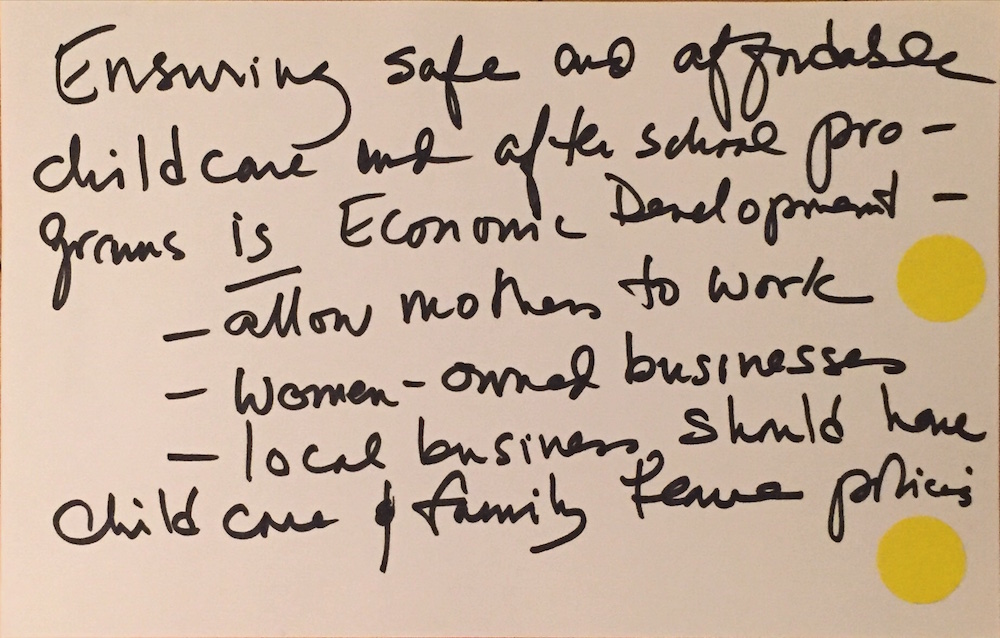 Ensuring safe and affordable
childcare and after school pro-
grams is Economic Development -
- allow mothers to work
- women-owned businesses
- local business should have
child care & family leave policies